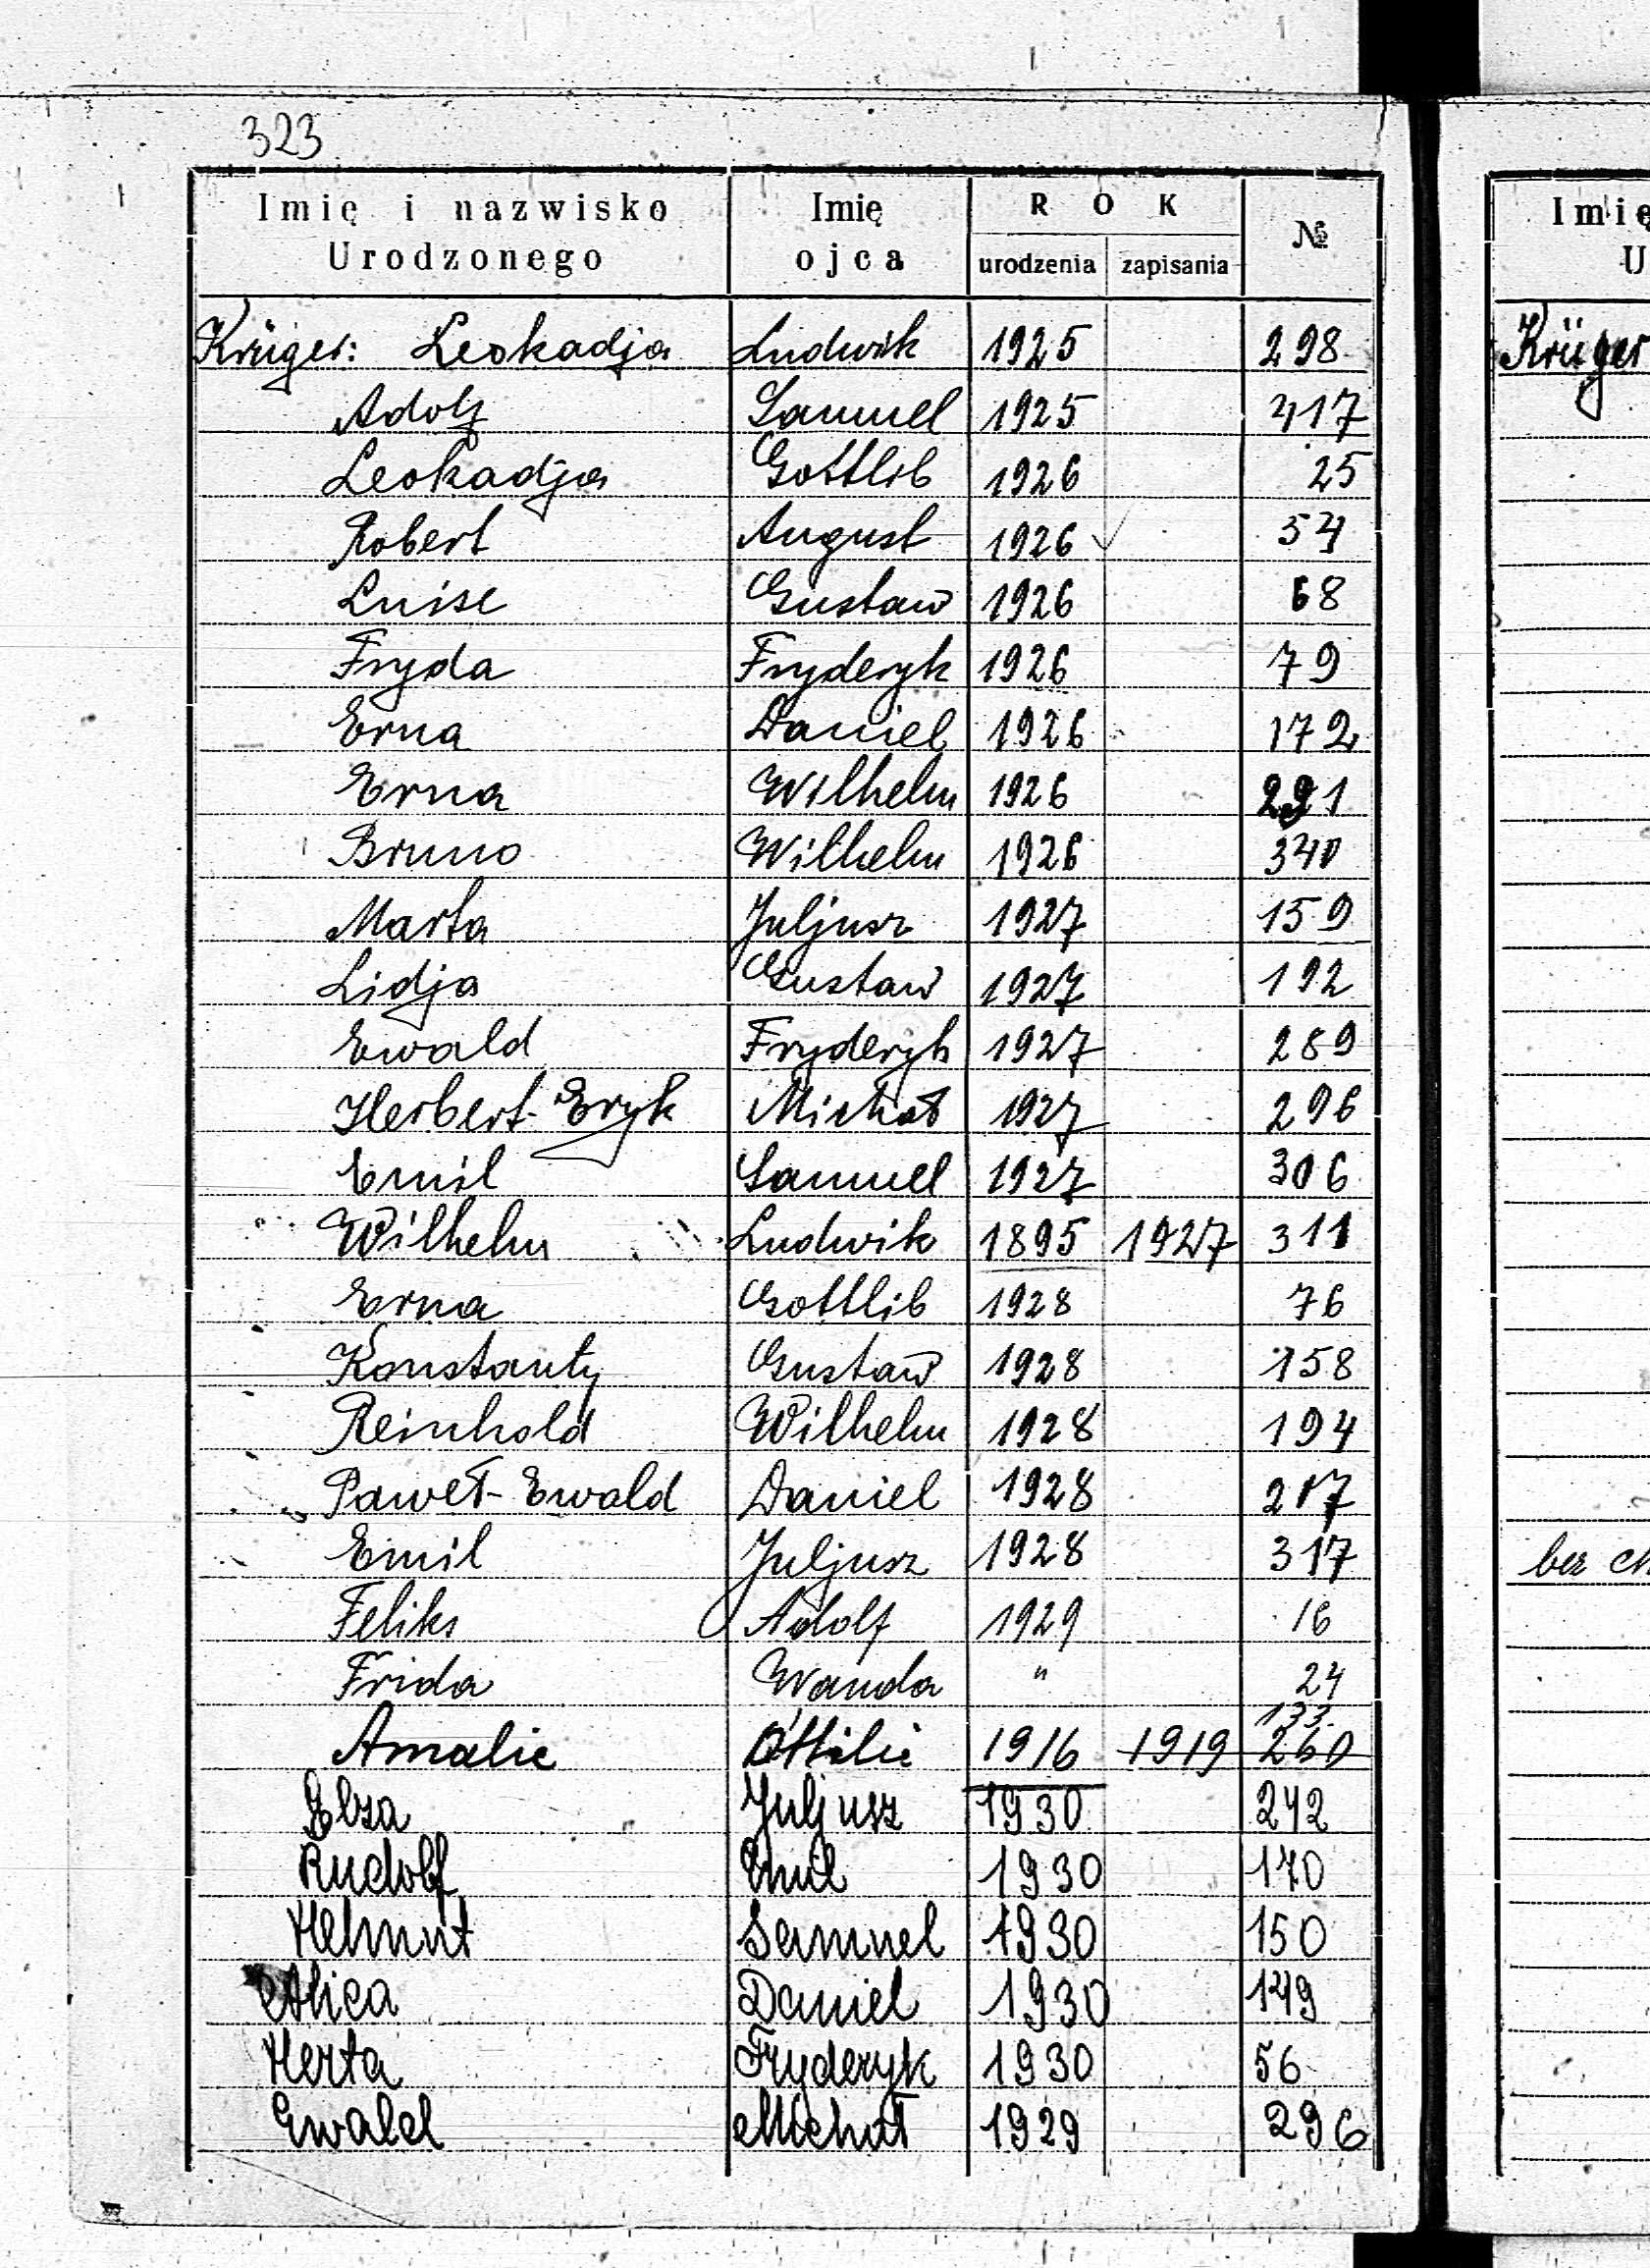 323
Imię i nazwisko Urodzonego | Imię ojca | ROK urodzenia | zapisania | №
Krüger: Leokadja Ludwik 1925 298
Adolf Samuel 1925 417
Leokadja Gottlib 1926 25
Robert August 1926 ✓ 54
Luise Gustaw 1926 68
Fryda Fryderyk 1926 79
Erna Daniel 1926 172
Erna Wilhelm 1926 291
Bruno Wilhelm 1926 340
Marta Juljusz 1927 159
Lidja Gustaw 1927 192
Ewald Fryderyk 1927 289
Herbert-Eryk Michał 1927 296
Emil Samuel 1927 306
Wilhelm Ludwik 1895 1927 311
Erna Gottlib 1928 76
Konstanty Gustaw 1928 158
Reinhold Wilhelm 1928 194
Paweł-Ewald Daniel 1928 217
Emil Juljusz 1928 317
Feliks Adolf 1929 16
Frida Wanda " 24
133.
Amalie Ottilie 1916 1919 260
Elza Juljusz 1930 242
Rudolf Emil 1930 170
Helmut Samuel 1930 150
Alica Daniel 1930 149
Herta Fryderyk 1930 56
Ewald Michał 1929 296
Imię
U
Krüger
bez ch